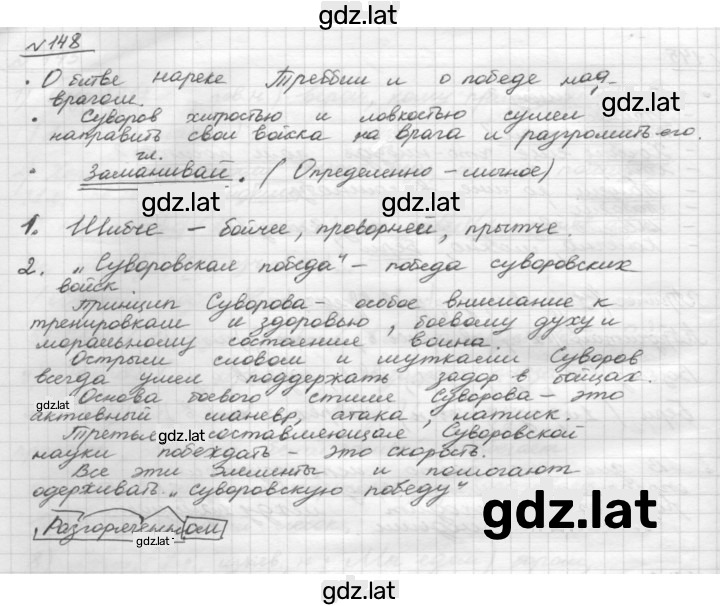 gdz.lat
№148
· О битве нареке Треббии и о победе над
врагом.
gdz.lat
· Суворов хитростью и ловкостью сумел
направить свои войска на врага и разгромить его.
гл.
· Заманивай. (Определенно-личное)
gdz.lat gdz.lat
1. Шибче – бойчее, проворней, прытче.
2. „Суворовская победа“ – победа суворовских
войск
Принцип Суворова – особое внимание к
тренировкам и здоровью, боевому духу и
моральному состоянию воина.
Острым словом и шутками Суворов
всегда умел поддержать задор в бойцах.
gdz.lat
Основа боевого стиля Суворова – это
активный маневр, атака, натиск.
gdz.lat
Третья составляющая Суворовской
науки побеждать – это скорость.
Все эти элементы и помогают
одерживать „суворовскую победу“
gdz.lat
Разгоряченным
gdz.lat
gdz.lat